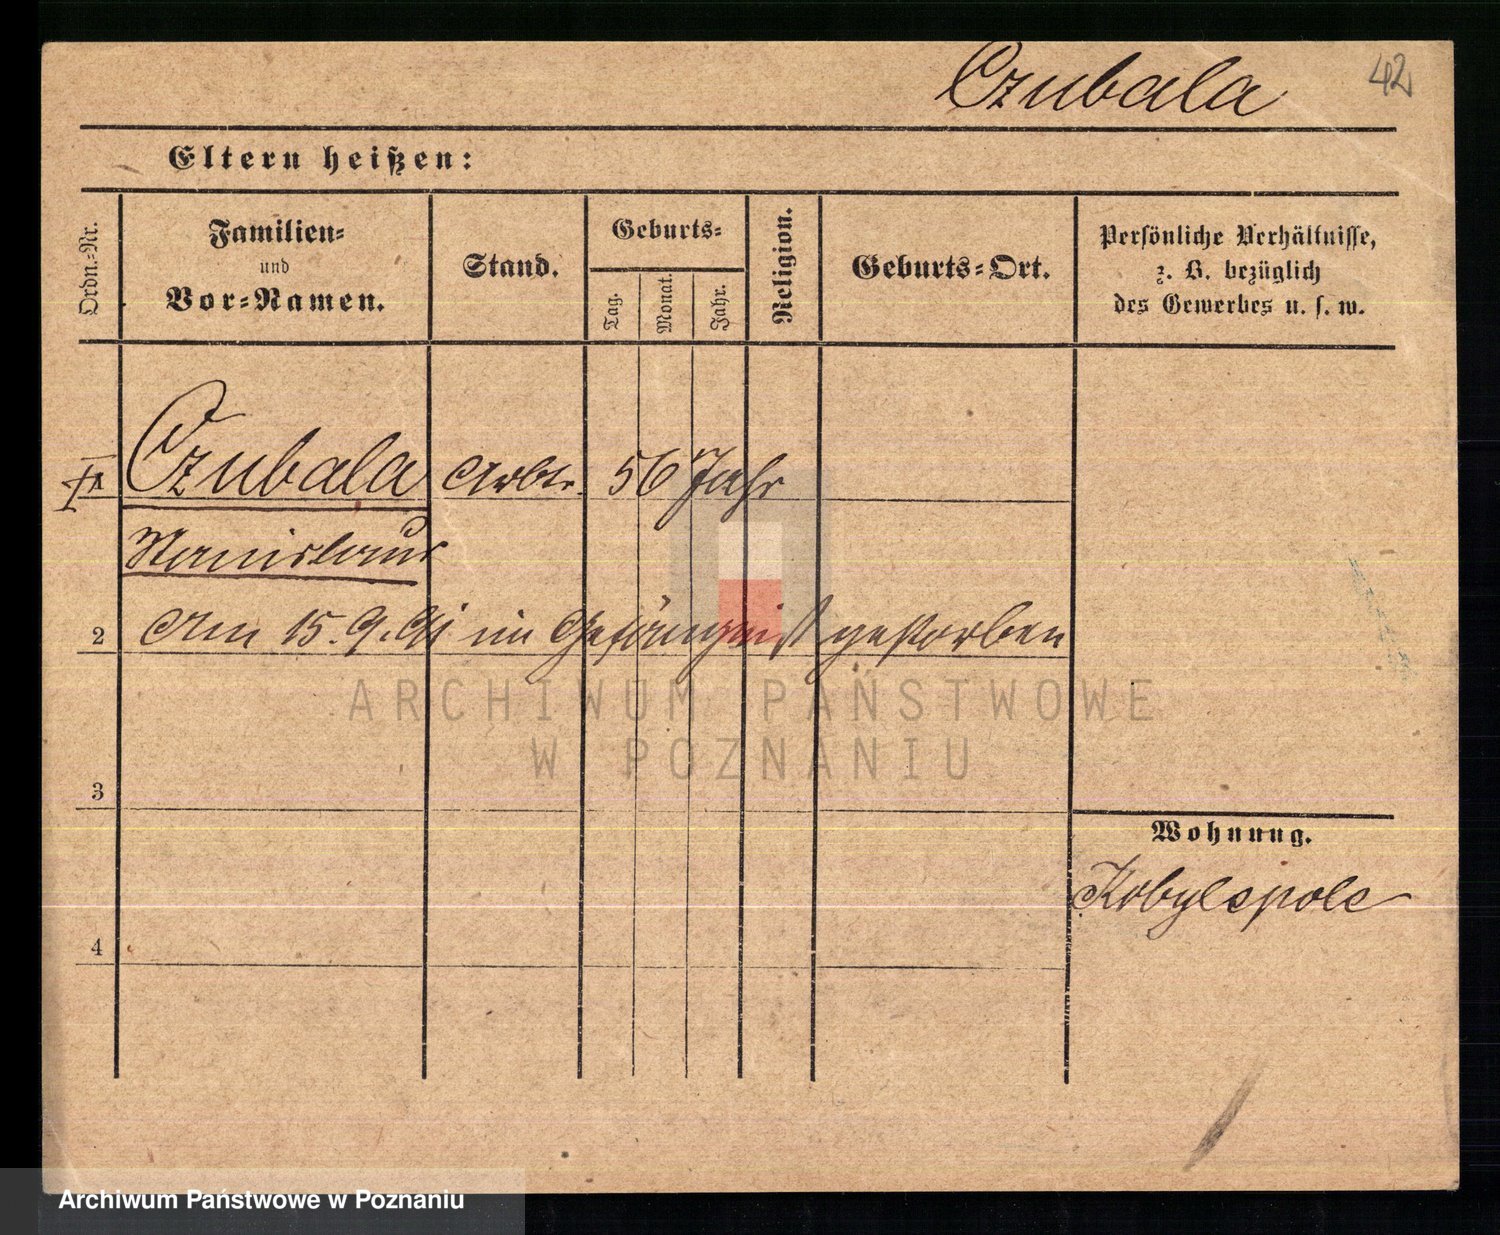 Czubala 42
Eltern heißen:
Ordn.-Nr.
Familien-
und
Vor-Namen.
Stand.
Geburts-
Tag.
Monat.
Jahr.
Religion.
Geburts-Ort.
Persönliche Verhältnisse,
z. B. bezüglich
des Gewerbes u. s. w.
Czubala Arbtr. 56 Jahr
Stanislaus
2 Am 15.9.91 im Gefängniß gestorben
ARCHIWUM PAŃSTWOWE
W POZNANIU
3
Wohnung.
Kobylepole
4
Archiwum Państwowe w Poznaniu